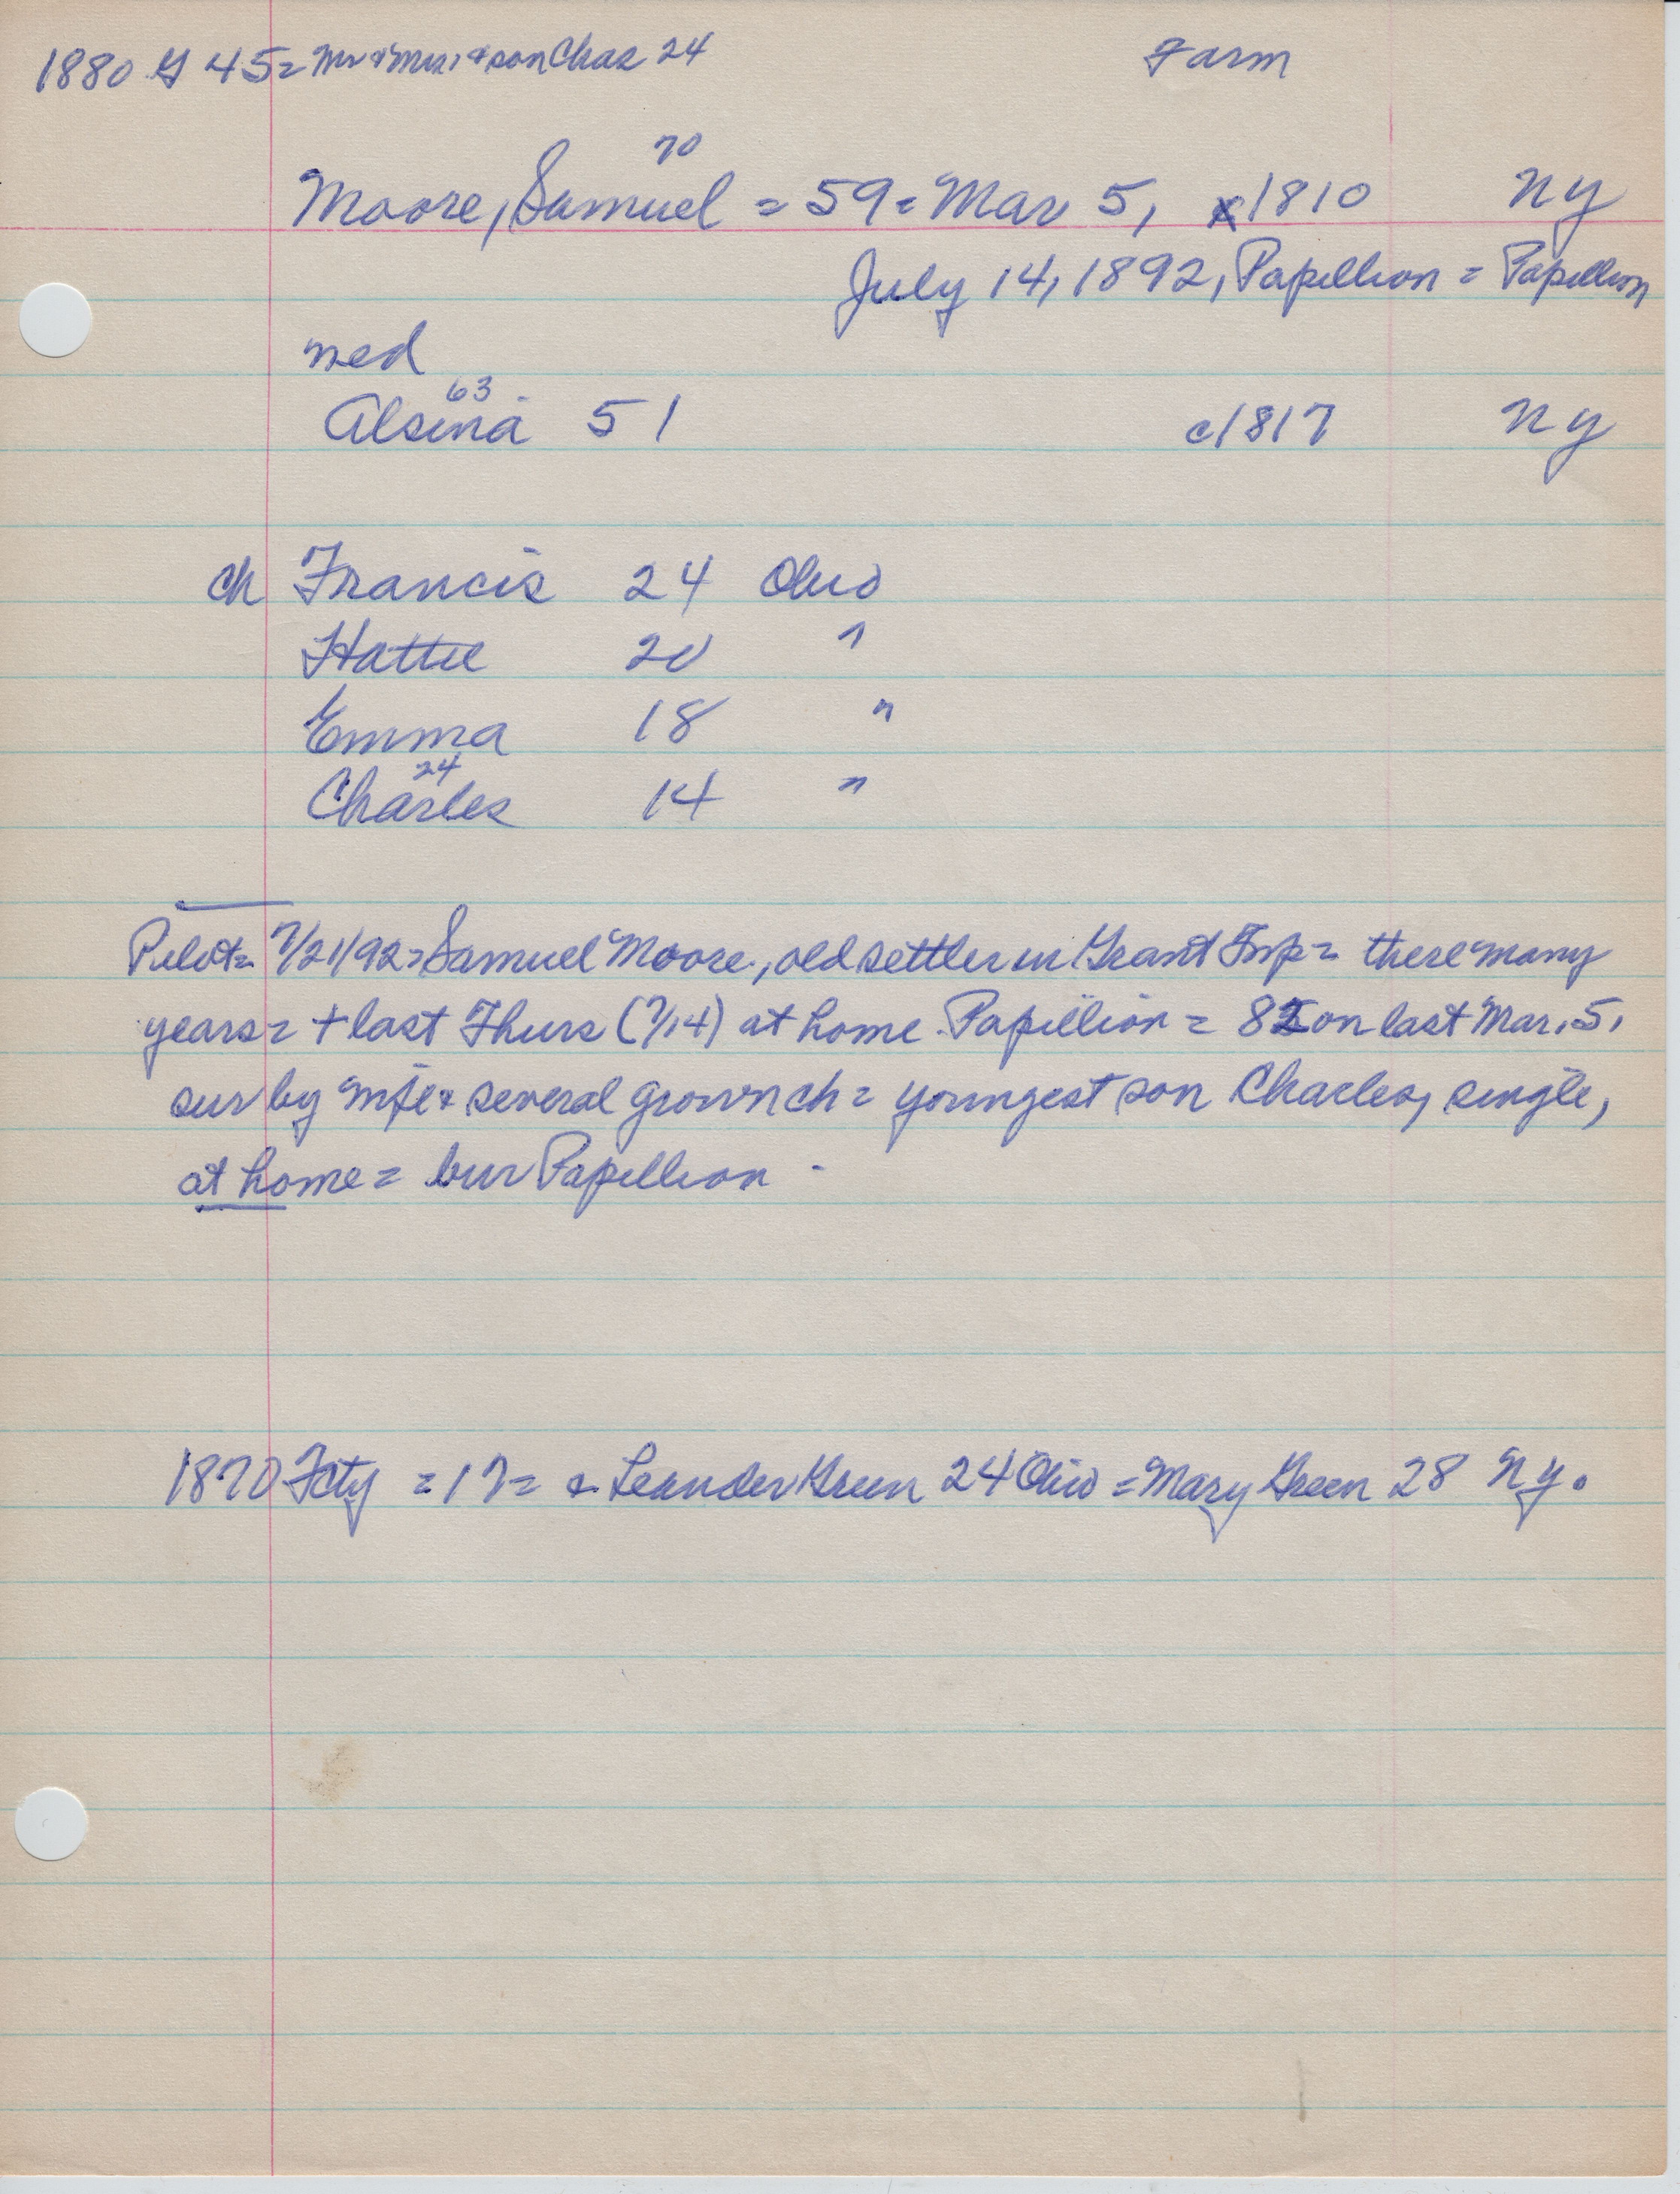 1880 G 45= Mr & Mrs, & son Chas 24 Farm
70
Moore, Samuel = 59 = Mar 5, x1810 NY
July 14, 1892, Papillion = Papillion
med
63
Alsina 51 c1817 NY
ch Francis 24 Ohio
Hattie 20 "
Emma 18 "
24
Charles 14 "
Pilot= 7/21/92= Samuel Moore, old settler in Grant Twp= there many
years= + last Thurs (7/14) at home. Papillion = 82 on last Mar. 5,
sur by wife & several grown ch = youngest son Charles, single,
at home = bur Papillion -
1870 Fcty = 17= & Leander Green 24 Ohio = Mary Green 28 NY.